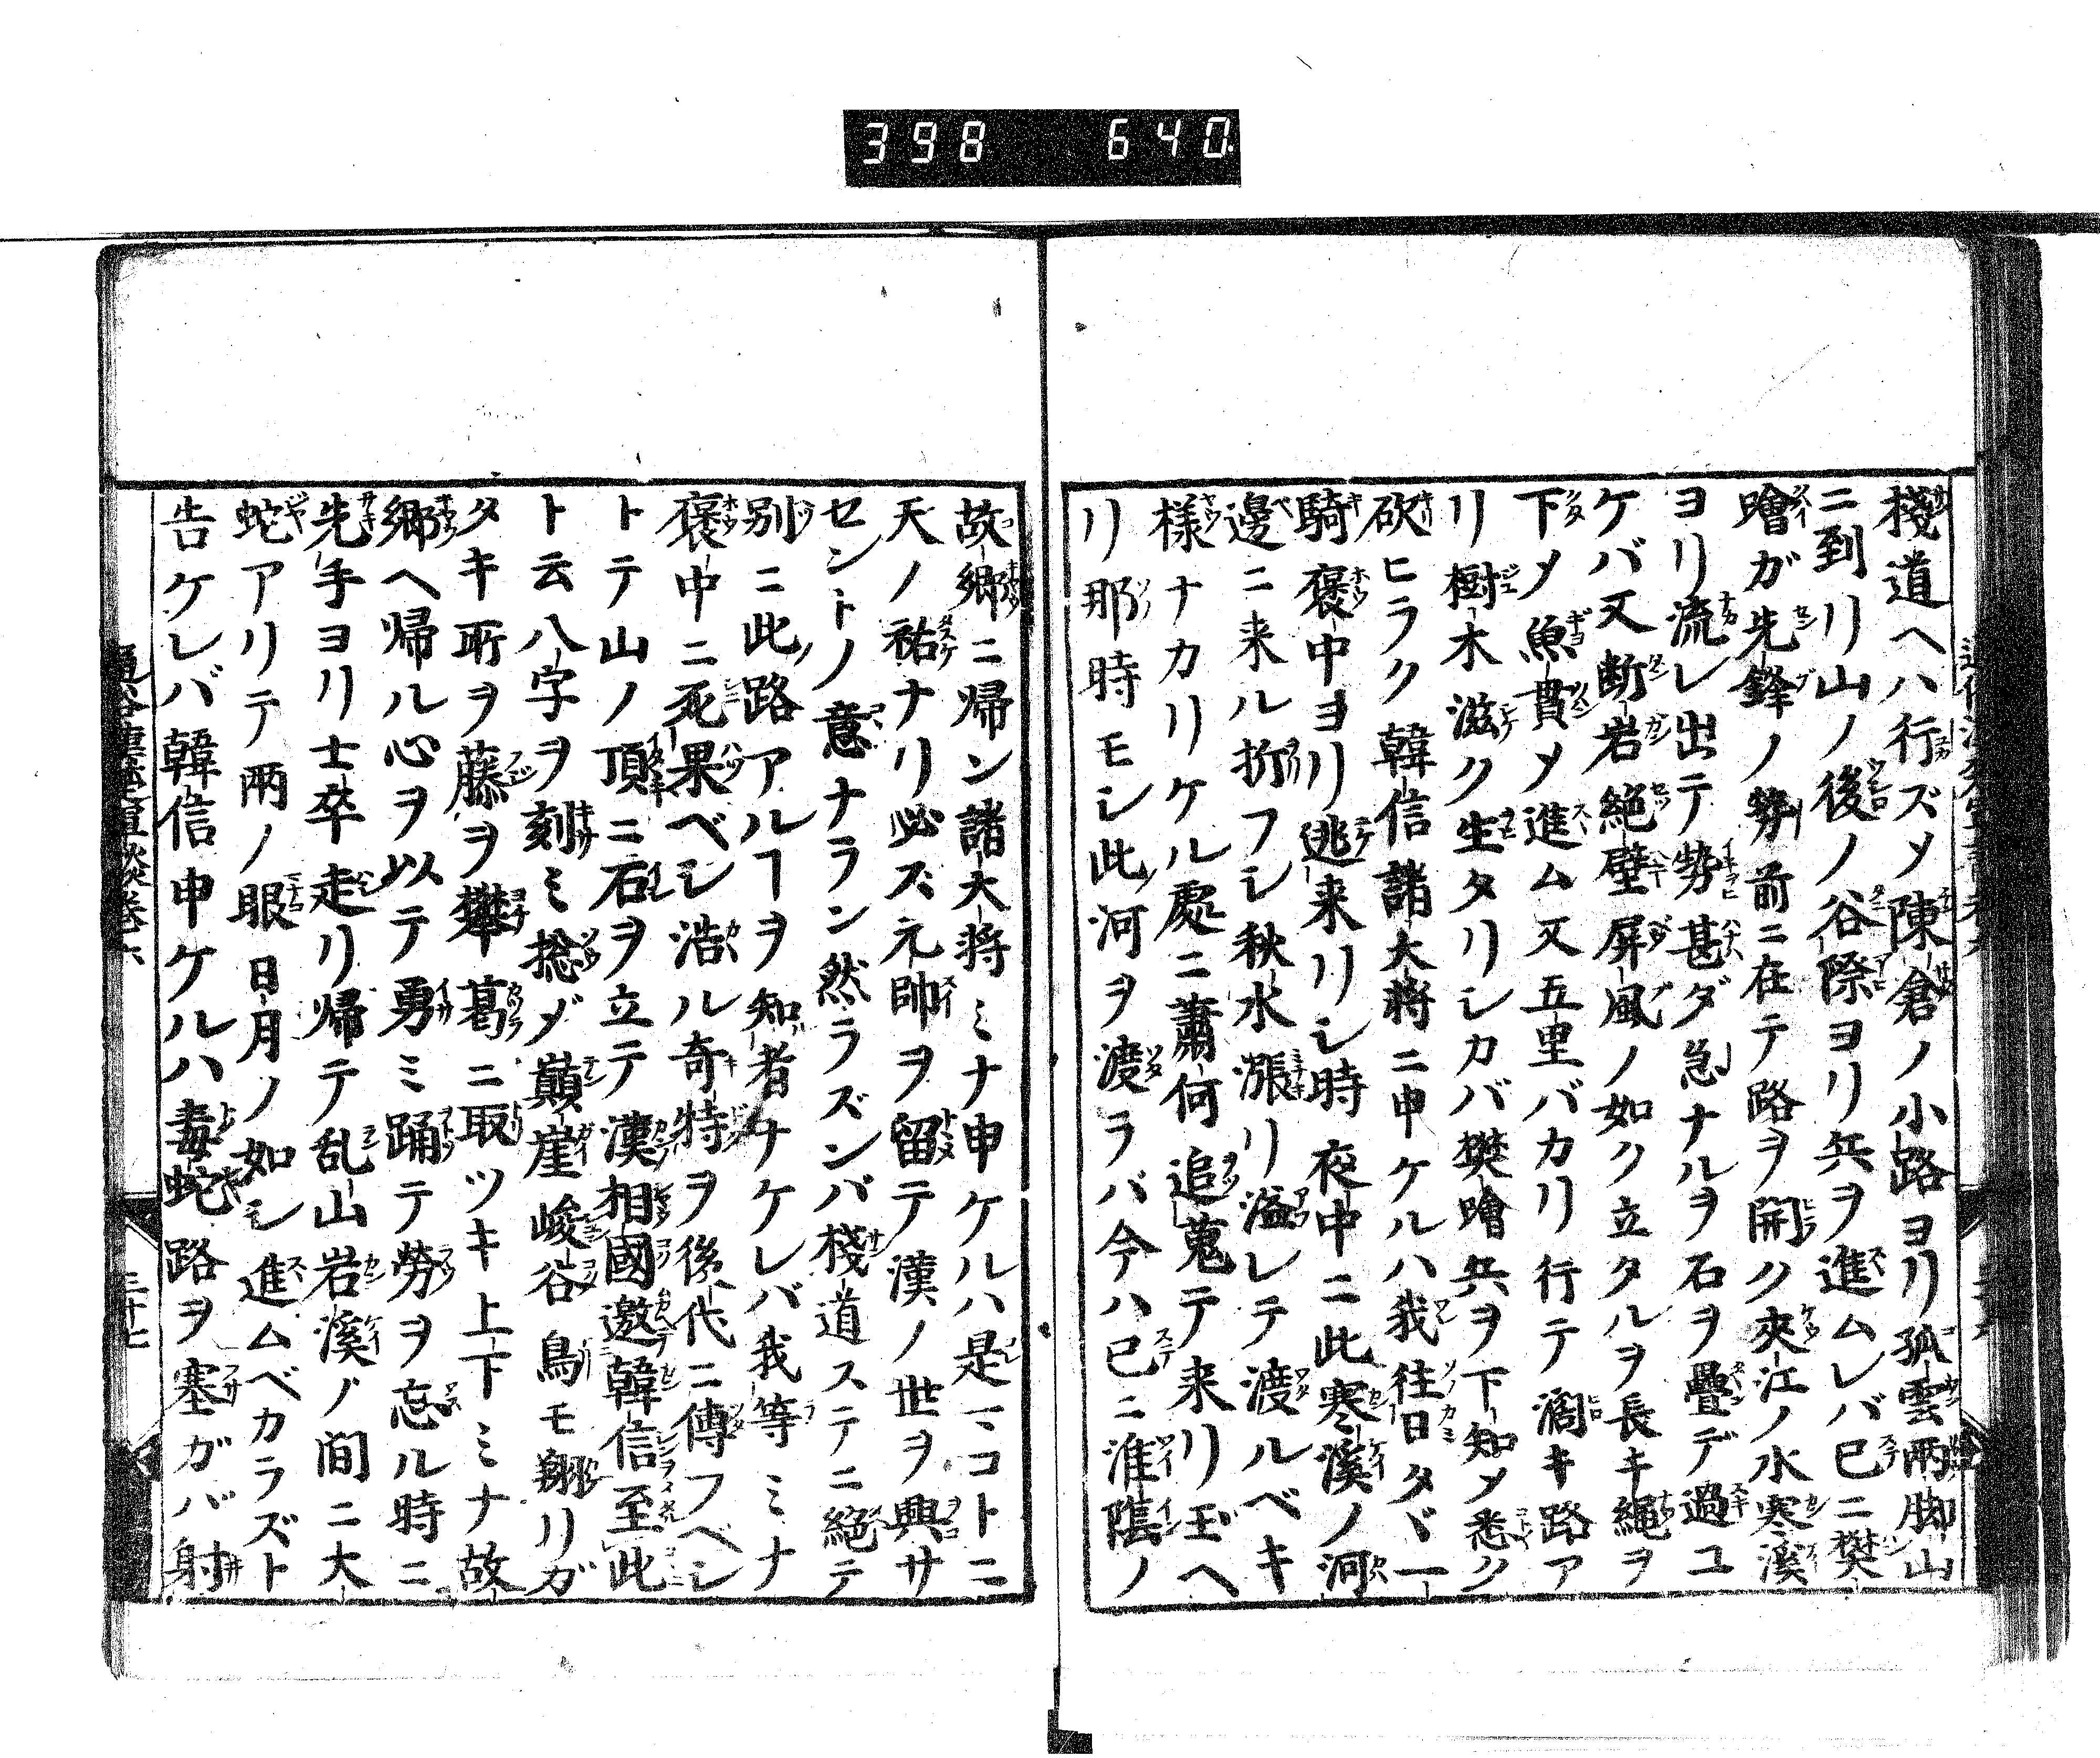 398 640
棧道ヘハ行ズメ陳倉ノ小路ヨリ孤雲兩脚山
ニ到リ山ノ後ノ谷際ヨリ兵ヲ進ムレバ已ニ樊
噲ガ先鋒ノ勢前ニ在テ路ヲ開ク夾江ノ水寒溪
ヨリ流レ出テ勢甚ダ急ナルヲ石ヲ疊デ過ユ
ケバ又断岩絶壁屏風ノ如ク立タルヲ長キ繩ヲ
下メ魚貫メ進ム又五里バカリ行テ濶キ路ア
リ樹木滋ク生タリシカバ樊噲兵ヲ下知メ悉ク
砍ヒラク韓信諸大將ニ申ケルハ我往日タヾ一
騎褒中ヨリ逃来リシ時夜中ニ此寒溪ノ河
邊ニ来ル折フシ秋水漲リ溢レテ渡ルベキ
様ナカリケル處ニ蕭何追蒐テ来リ玉ヘ
リ那時モシ此河ヲ渡ラバ今ハ已ニ淮陰ノ
故郷ニ帰ン諸大将ミナ申ケルハ是マコトニ
天ノ祐ナリ必ズ元帥ヲ留テ漢ノ世ヲ興サ
セントノ意ナラン然ラズンバ棧道ステニ絶テ
別ニ此路アルヿヲ知者ナケレバ我等ミナ
褒中ニ死果ベシ浩ル奇特ヲ後代ニ傳フベシ
トテ山ノ頂ニ石ヲ立テ漢相國邀韓信至此
ト云八字ヲ刻ミ捴ヂ巓崖峻谷鳥モ翔リガ
タキ所ヲ藤ヲ攀葛ニ取ツキ上下ミナ故
郷ヘ帰ル心ヲ以テ勇ミ踊テ勞ヲ忘ル時ニ
先手ヨリ士卒走リ帰テ乱山岩溪ノ间ニ大
蛇アリテ兩ノ眼日月ノ如シ進ムベカラズト
告ケレバ韓信申ケルハ毒蛇路ヲ塞ガバ射
三十七